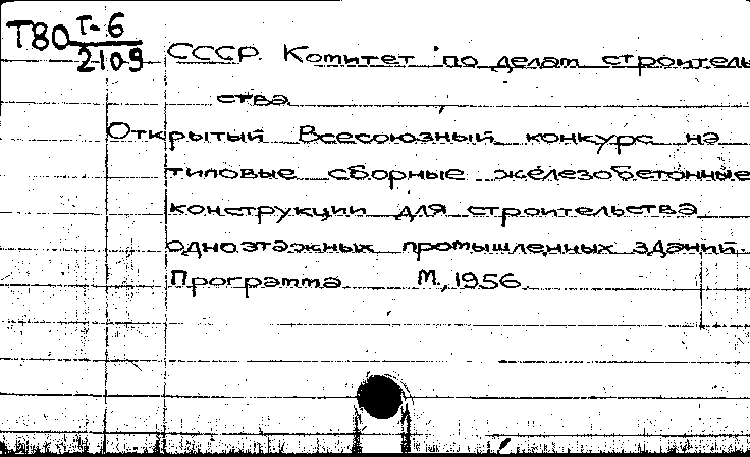 Т80 Т-6
2109
СССР. Комитет по делам строитель
ства
Открытый Всесоюзный конкурс на
типовые сборные железобетонные
конструкции для строительства
одноэтажных промышленных зданий.
Программа М., 1956